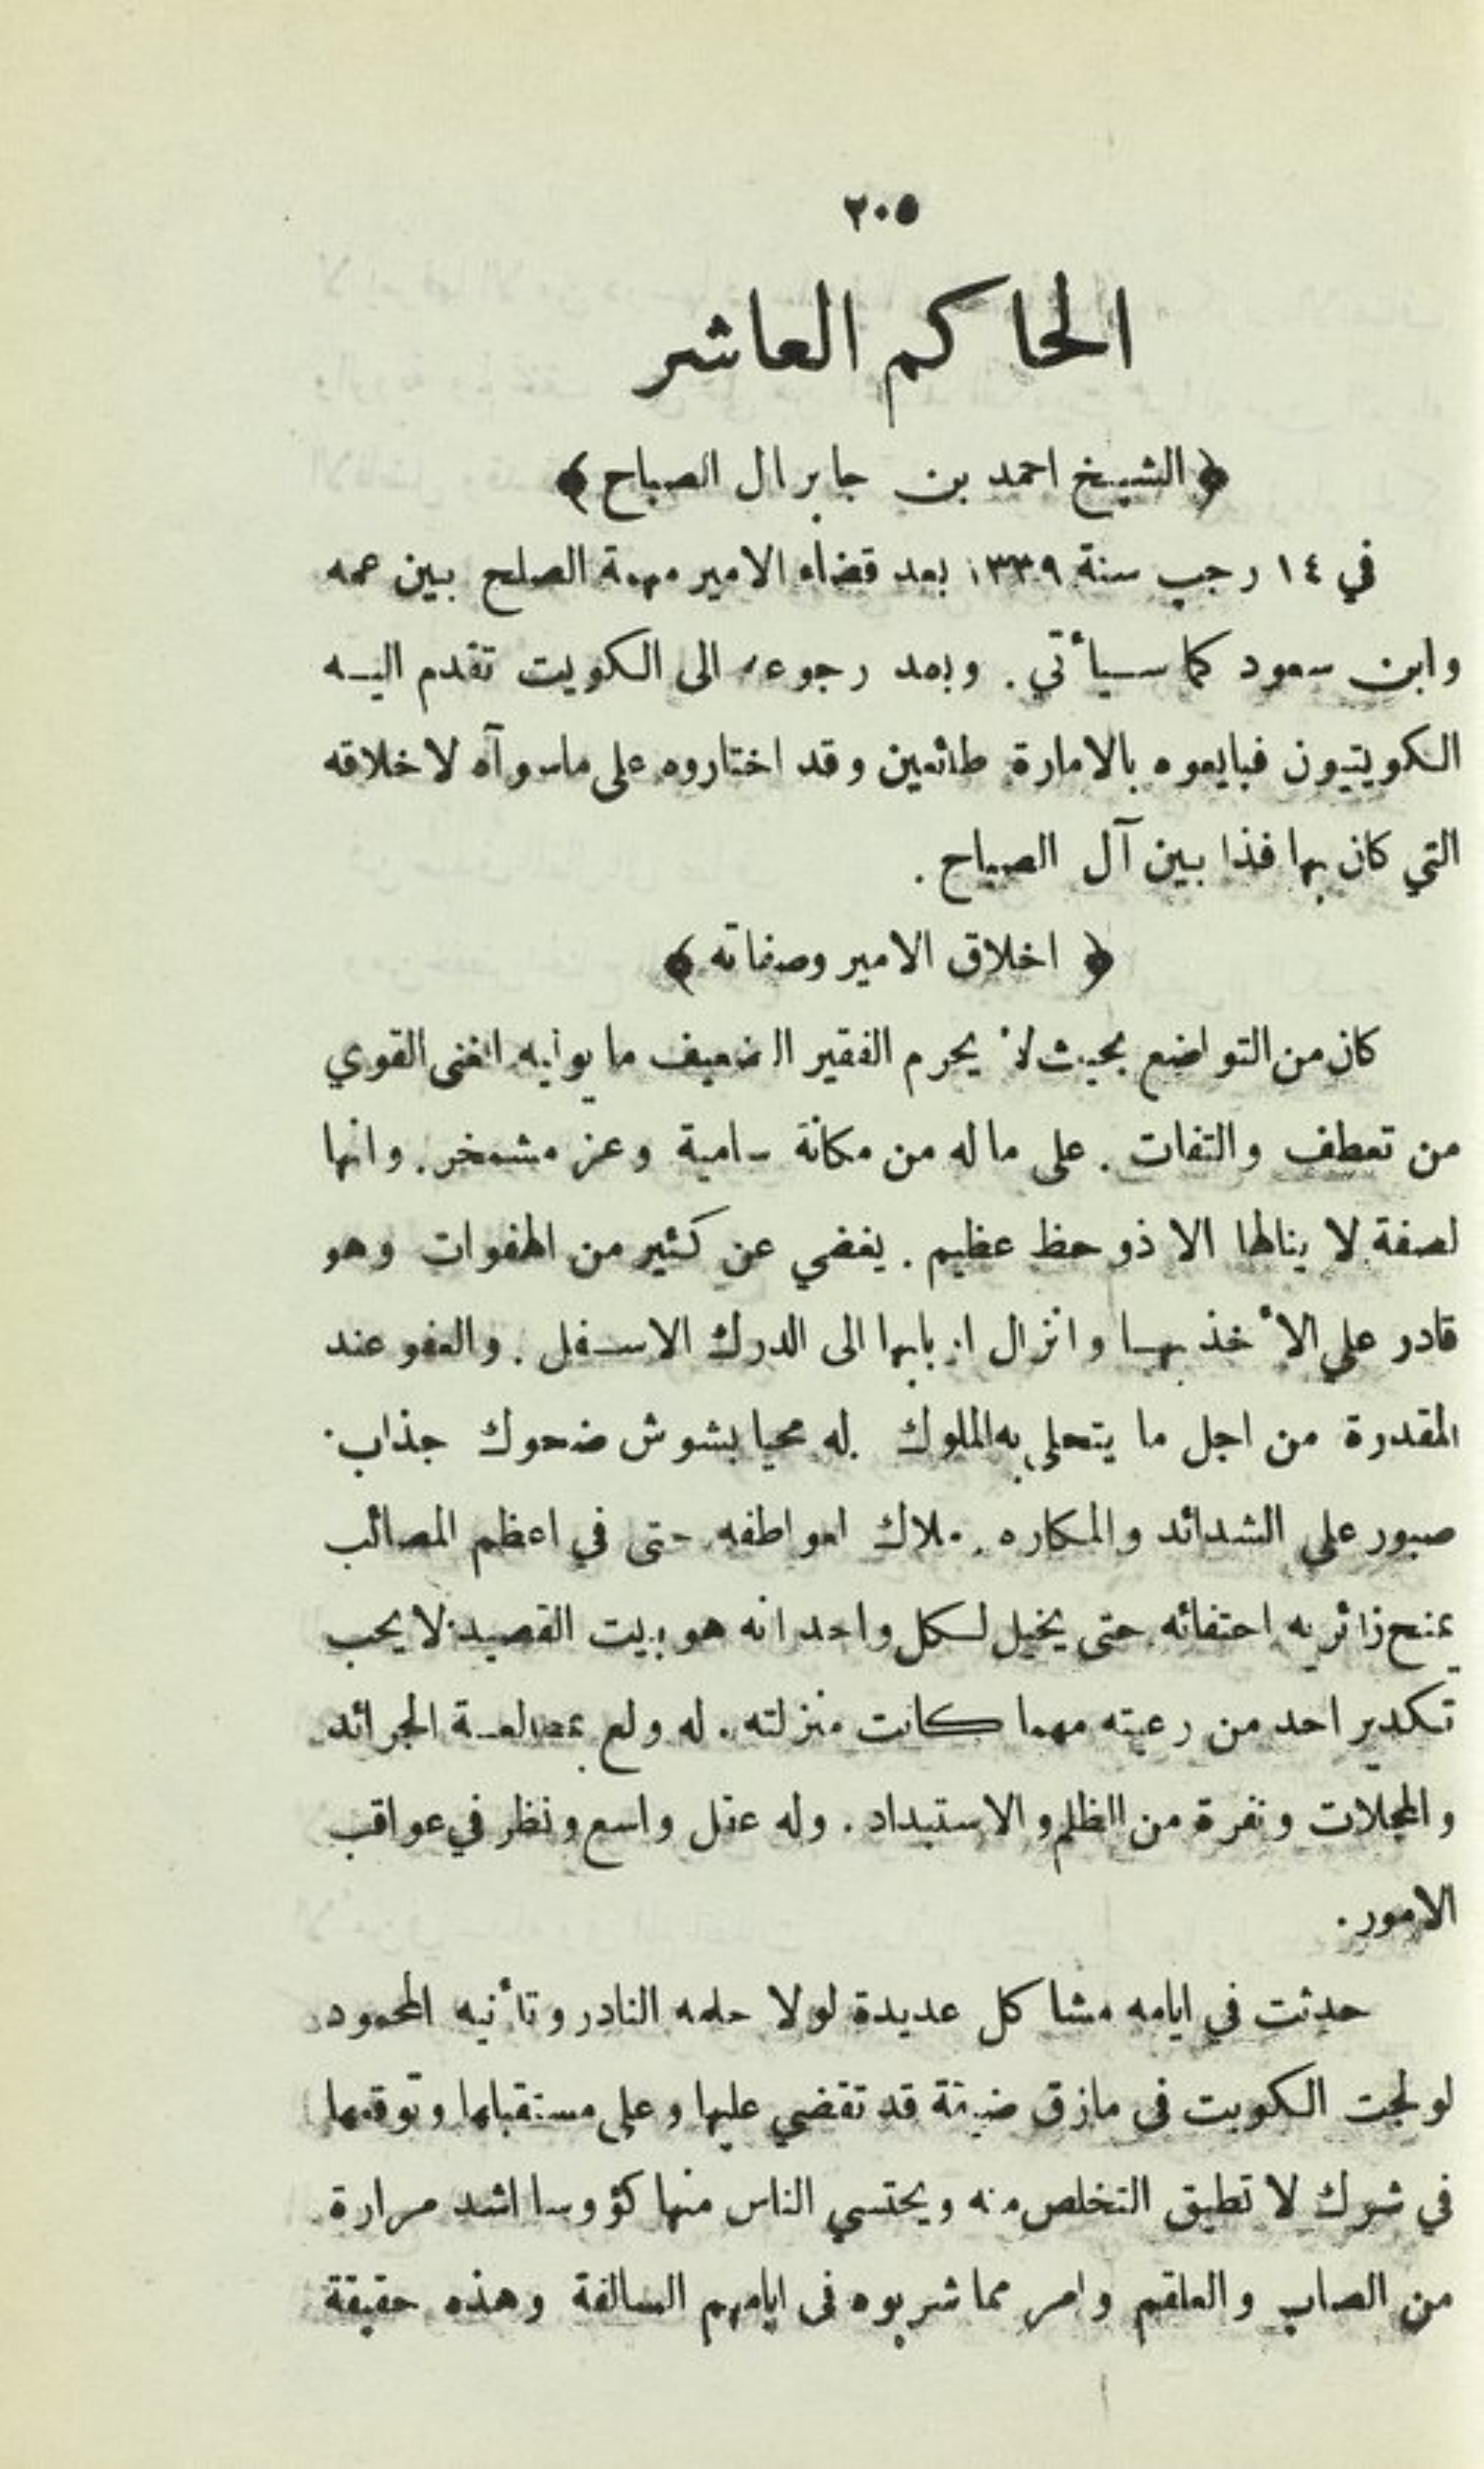 ٢٠٥
الحاكم العاشر
﴿ الشيخ احمد بن جابر ال الصباح ﴾
في ١٤ رجب سنة ١٣٣٩ بعد قضاء الامير مهمة الصلح بين عمه
وابن سعود كما سيأتي . وبعد رجوعه الى الكويت تقدم اليه
الكويتيون فبايعوه بالامارة طائعين وقد اختاروه على ماسوآه لاخلاقه
التي كان بها فذا بين آل الصباح .
﴿ اخلاق الامير وصفاته ﴾
كان من التواضع بحيث لا يحرم الفقير الضعيف ما يوليه الغنى القوي
من تعطف والتفات . على ما له من مكانة سامية وعز مشمخر . وانها
لصفة لا ينالها الا ذو حظ عظيم . يغضي عن كثير من الهفوات وهو
قادر على الأخذ بها وانزال اربابها الى الدرك الاسفل . والعفو عند
المقدرة من اجل ما يتحلى به الملوك . له محيا بشوش ضحوك جذاب .
صبور على الشدائد والمكاره . ملاك لعواطفه حتى في اعظم المصائب
يمنح زائريه احتفائه حتى يخيل لكل واحد انه هو بيت القصيد . لا يحب
تكدير احد من رعيته مهما كانت منزلته . له ولع بمطالعة الجرائد
والمجلات ونفرة من الظلم والاستبداد . وله عقل واسع ونظر في عواقب
الامور .
حدثت في ايامه مشاكل عديدة لولا حلمه النادر وتأنيه المحمود
لولجت الكويت في مازق ضيقة قد تقضي عليها وعلى مستقبلها وتوقعها
في شرك لا تطيق التخلص منه ويحتسي الناس منها كؤوسا اشد مرارة
من الصاب والعلقم وامر مما شربوه في ايامهم السالفة وهذه حقيقة